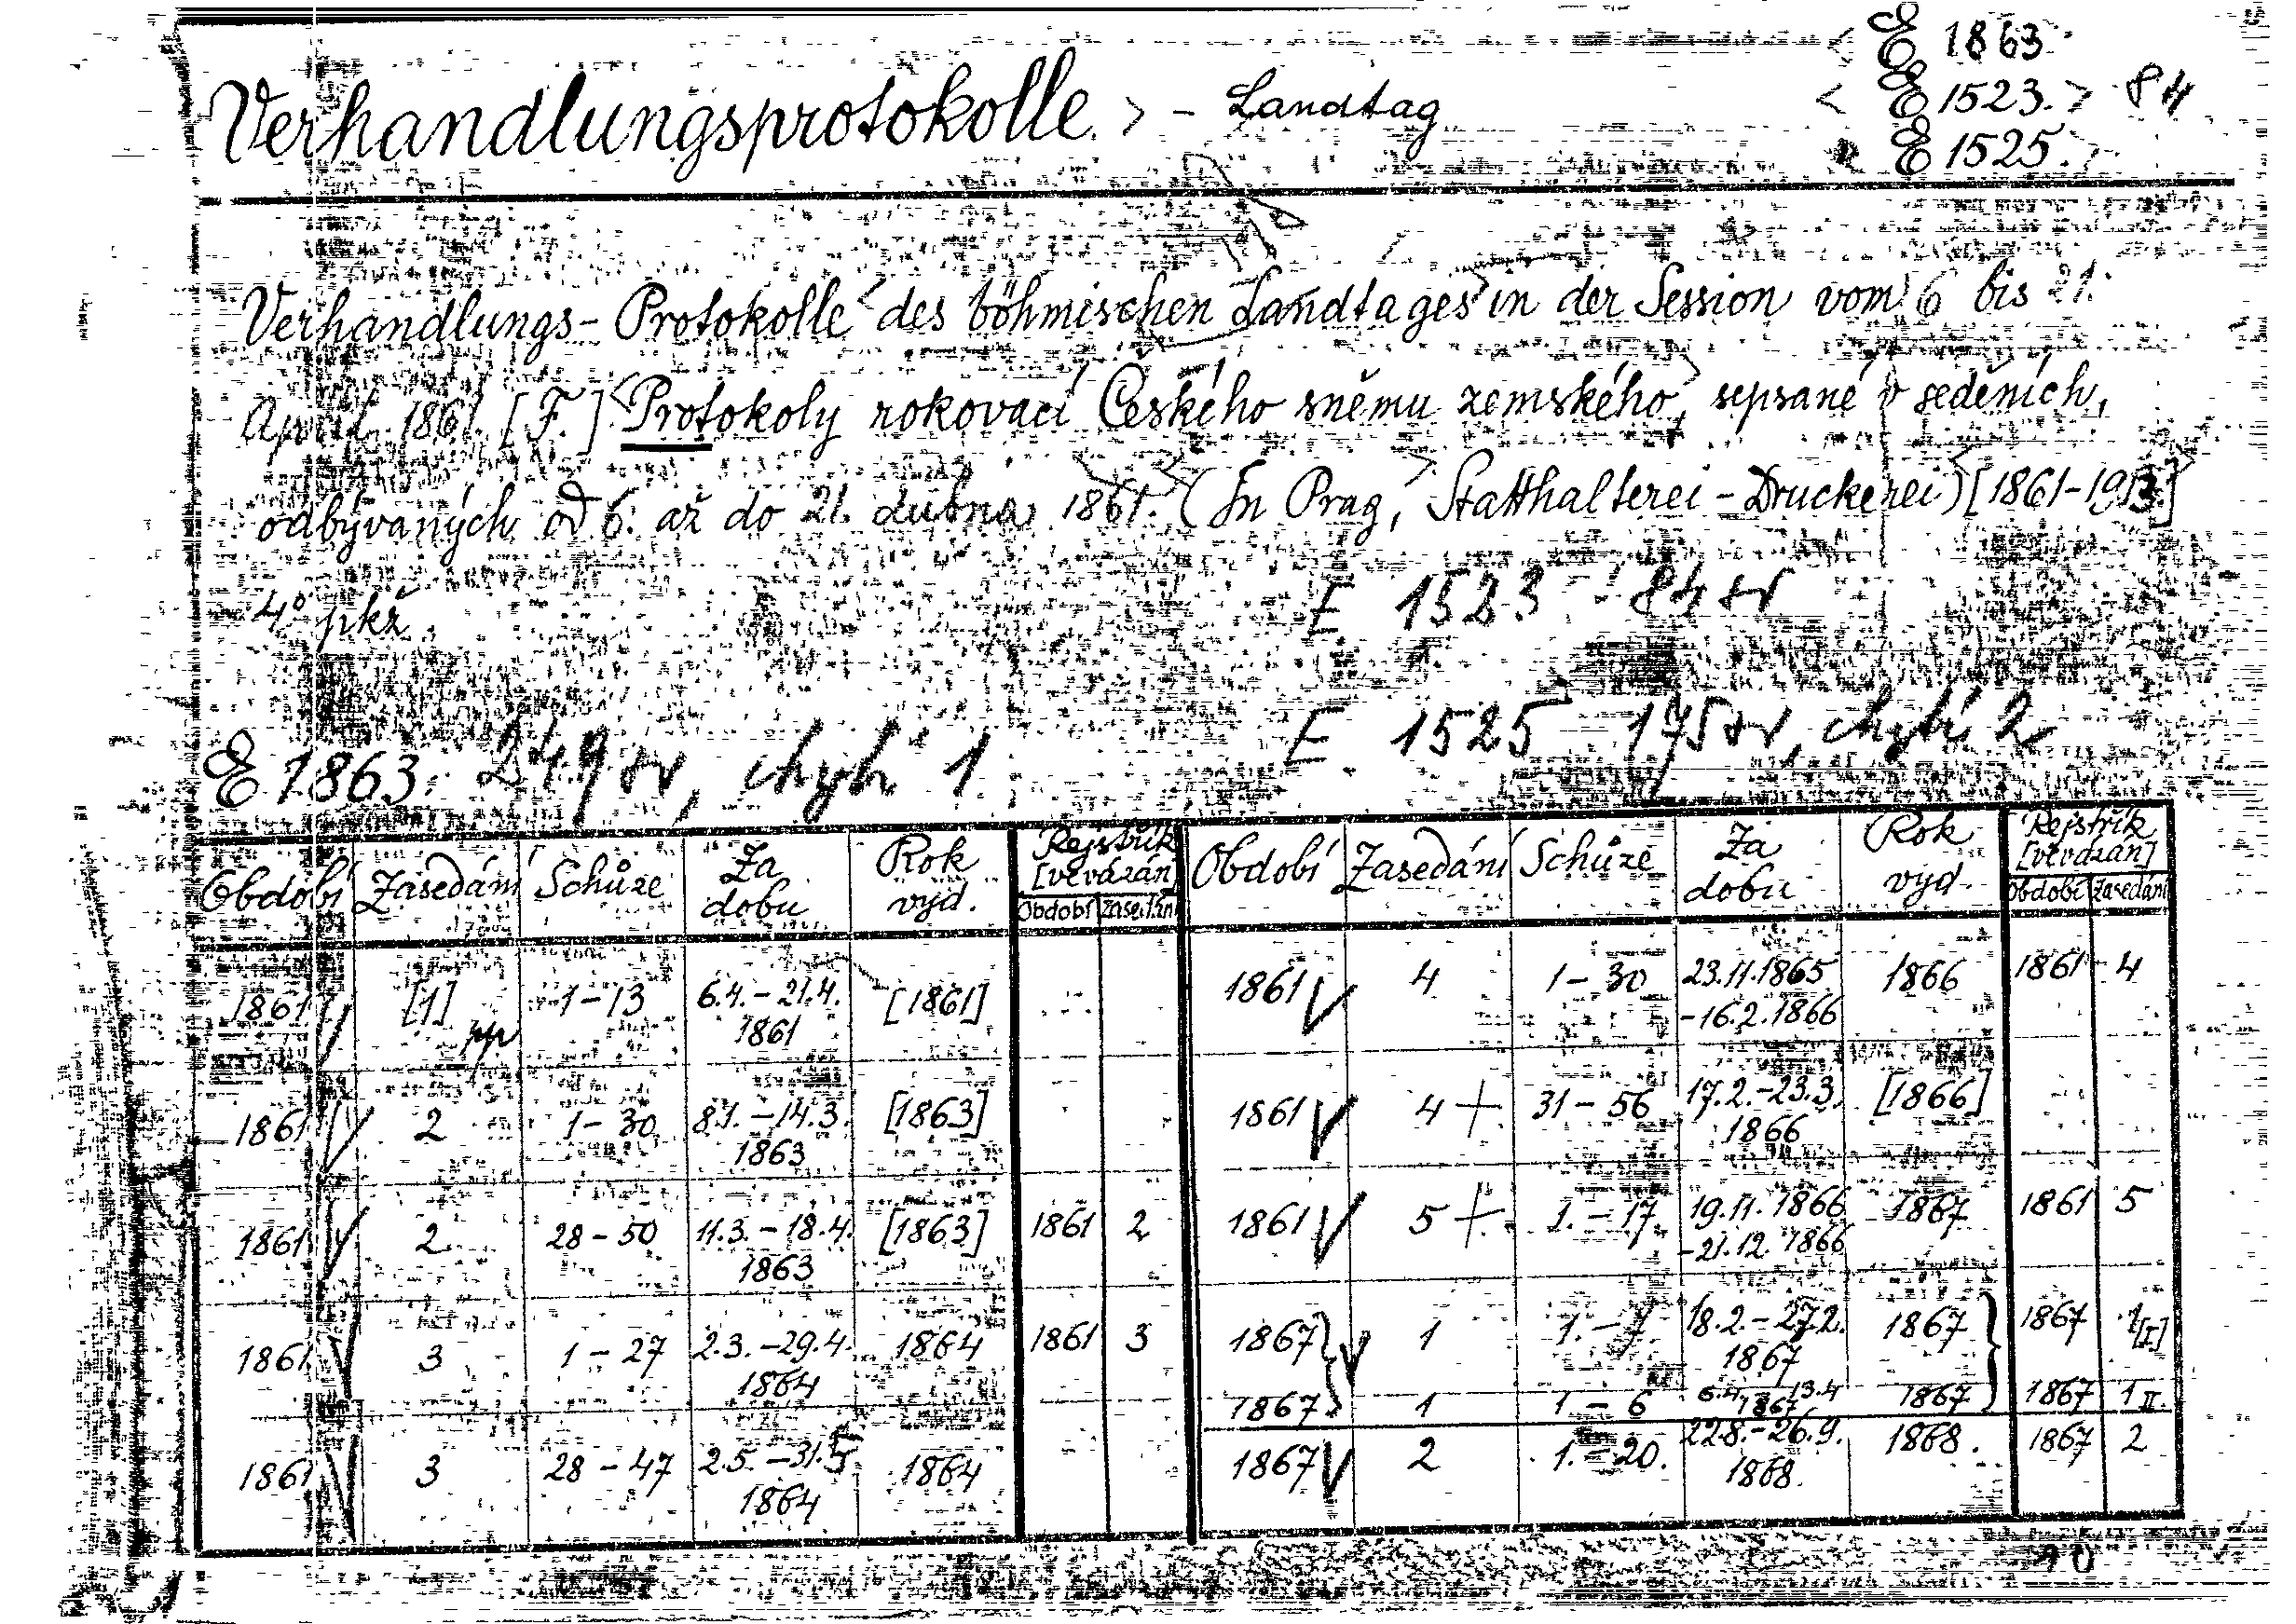 E 1863
Verhandlungsprotokolle > - Landtag < E 1523. > 84
E 1525.
Verhandlungs-Protokolle des böhmischen Landtages in der Session vom 6 bis 21.
April 1861. [F.] Protokoly rokovací Českého sněmu zemského, sepsané v seděních,
odbývaných od 6. až do 21. dubna 1861. (In Prag, Statthalterei-Druckerei) [1861-1913]
4° pkž
E 1523 84 sv
E 1863 249 sv, chybí 1
E 1525 175 sv, chybí 2
Období Zasedání Schůze Za dobu Rok vyd. Rejstřík [vevázán] Období Zasedání
1861 [1] 1-13 6.4.-21.4. 1861 [1861]
1861 2 1-30 8.1.-14.3. 1863 [1863]
1861 2 28-50 11.3.-18.4. 1863 [1863] 1861 2
1861 3 1-27 2.3.-29.4. 1864 1864 1861 3
1861 3 28-47 2.5.-31.5. 1864 1864
Období Zasedání Schůze Za dobu Rok vyd. Rejstřík [vevázán] Období Zasedání
1861 4 1-30 23.11.1865 -16.2.1866 1866 1861 4
1861 4 + 31-56 17.2.-23.3. 1866 [1866]
1861 5 + 1.-17. 19.11.1866 -21.12.1866 1867 1861 5
1867 1 1.-7. 18.2.-27.2. 1867 1867 1867 1 [I]
1867 1 1-6 6.4.-13.4 1867 1867 1867 1 II.
1867 2 1.-20. 22.8.-26.9. 1868. 1868. 1867 2